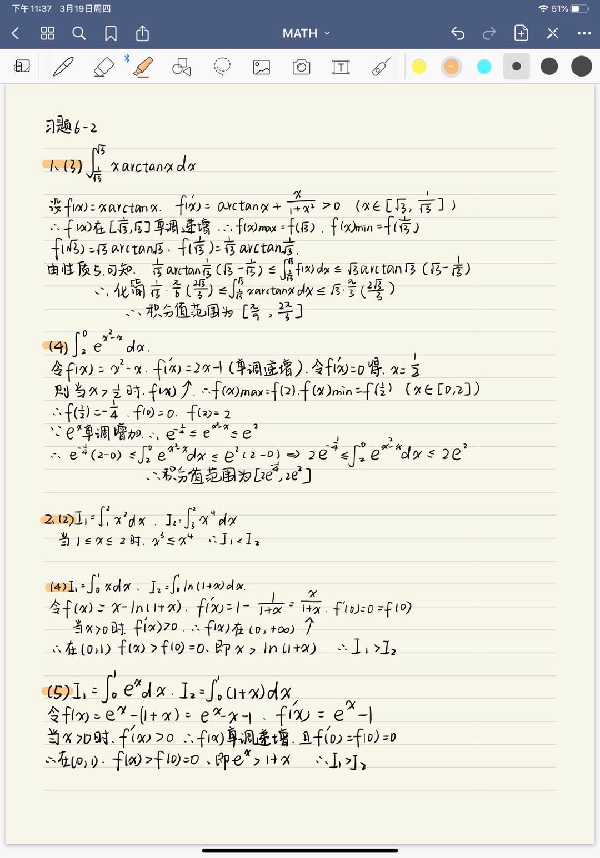 下午11:37 3月19日周四
51%
MATH
T
习题6-2
1.(3) ∫_{1/√3}^{√3} xarctanxdx
设f(x)=xarctanx. f'(x)=arctanx+x/(1+x²)>0 (x∈[√3,1/√3])
∴f(x)在[1/√3,√3]单调递增 ∴f(x)max=f(√3). f(x)min=f(1/√3)
f(√3)=√3arctan√3. f(1/√3)=1/√3 arctan1/√3.
由性质5可知. 1/√3 arctan1/√3(√3-1/√3)≤∫_{1/√3}^{√3}f(x)dx≤√3arctan√3(√3-1/√3)
∴化简 1/√3·π/6(2√3/3)≤∫_{1/√3}^{√3}xarctanxdx≤√3·π/3(2√3/3)
∴积分值范围为[π/9,2π/3]
(4)∫_2^0 e^{x²-x}dx.
令f(x)=x²-x. f'(x)=2x-1(单调递增).令f'(x)=0得.x=1/2
则当x>1/2时.f(x)↑.∴f(x)max=f(2).f(x)min=f(1/2) (x∈[0,2])
∴f(1/2)=-1/4 f(0)=0. f(2)=2
∵e^x单调增加.∴e^{-1/4}≤e^{x²-x}≤e²
∴e^{-1/4}(2-0)≤∫_2^0 e^{x²-x}dx≤e²(2-0)⇒2e^{-1/4}≤∫_2^0 e^{x²-x}dx≤2e²
∴积分值范围为[2e^{-1/4},2e²]
2.(2)I₁=∫_1^2 x²dx. I₂=∫_3^2 x⁴dx
当1≤x≤2时.x³≤x⁴ ∴I₁<I₂
(4)I₁=∫_0^1 xdx. I₂=∫_0^1 ln(1+x)dx.
令f(x)=x-ln(1+x). f'(x)=1-1/(1+x)=x/(1+x). f'(0)=0=f(0)
当x>0时.f'(x)>0.∴f(x)在(0,+∞)↑
∴在(0,1) f(x)>f(0)=0.即x>ln(1+x) ∴I₁>I₂
(5)I₁=∫_0^1 e^xdx.I₂=∫_0^1 (1+x)dx
令f(x)=e^x-(1+x)=e^x-x-1. f'(x)=e^x-1
当x>0时.f'(x)>0 ∴f(x)单调递增.且f'(0)=f(0)=0
∴在(0,1).f(x)>f(0)=0.即e^x>1+x ∴I₁>I₂